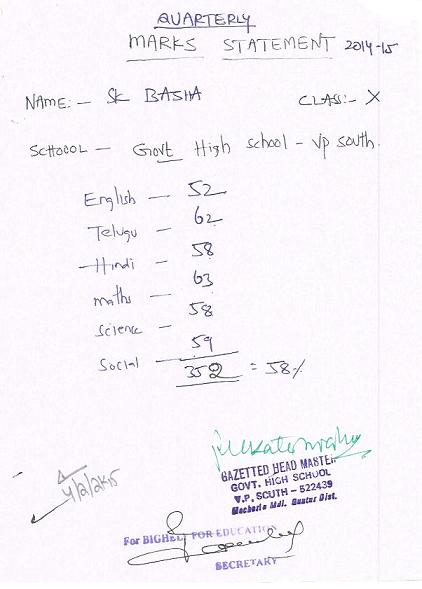 QUARTERLY
MARKS STATEMENT 2014-15
NAME:- SK BASHA CLASS:- X
SCHOOOL - Govt High school - VP South.
English - 52
Telugu - 62
Hindi - 58
maths - 63
science - 58
Social - 59
352 = 58%
GAZETTED HEAD MASTER
GOVT. HIGH SCHOOL
V.P. SOUTH - 522439
Macherla Mdl. Guntur Dist.
4/2/2015
For BIGHELP FOR EDUCATION
SECRETARY